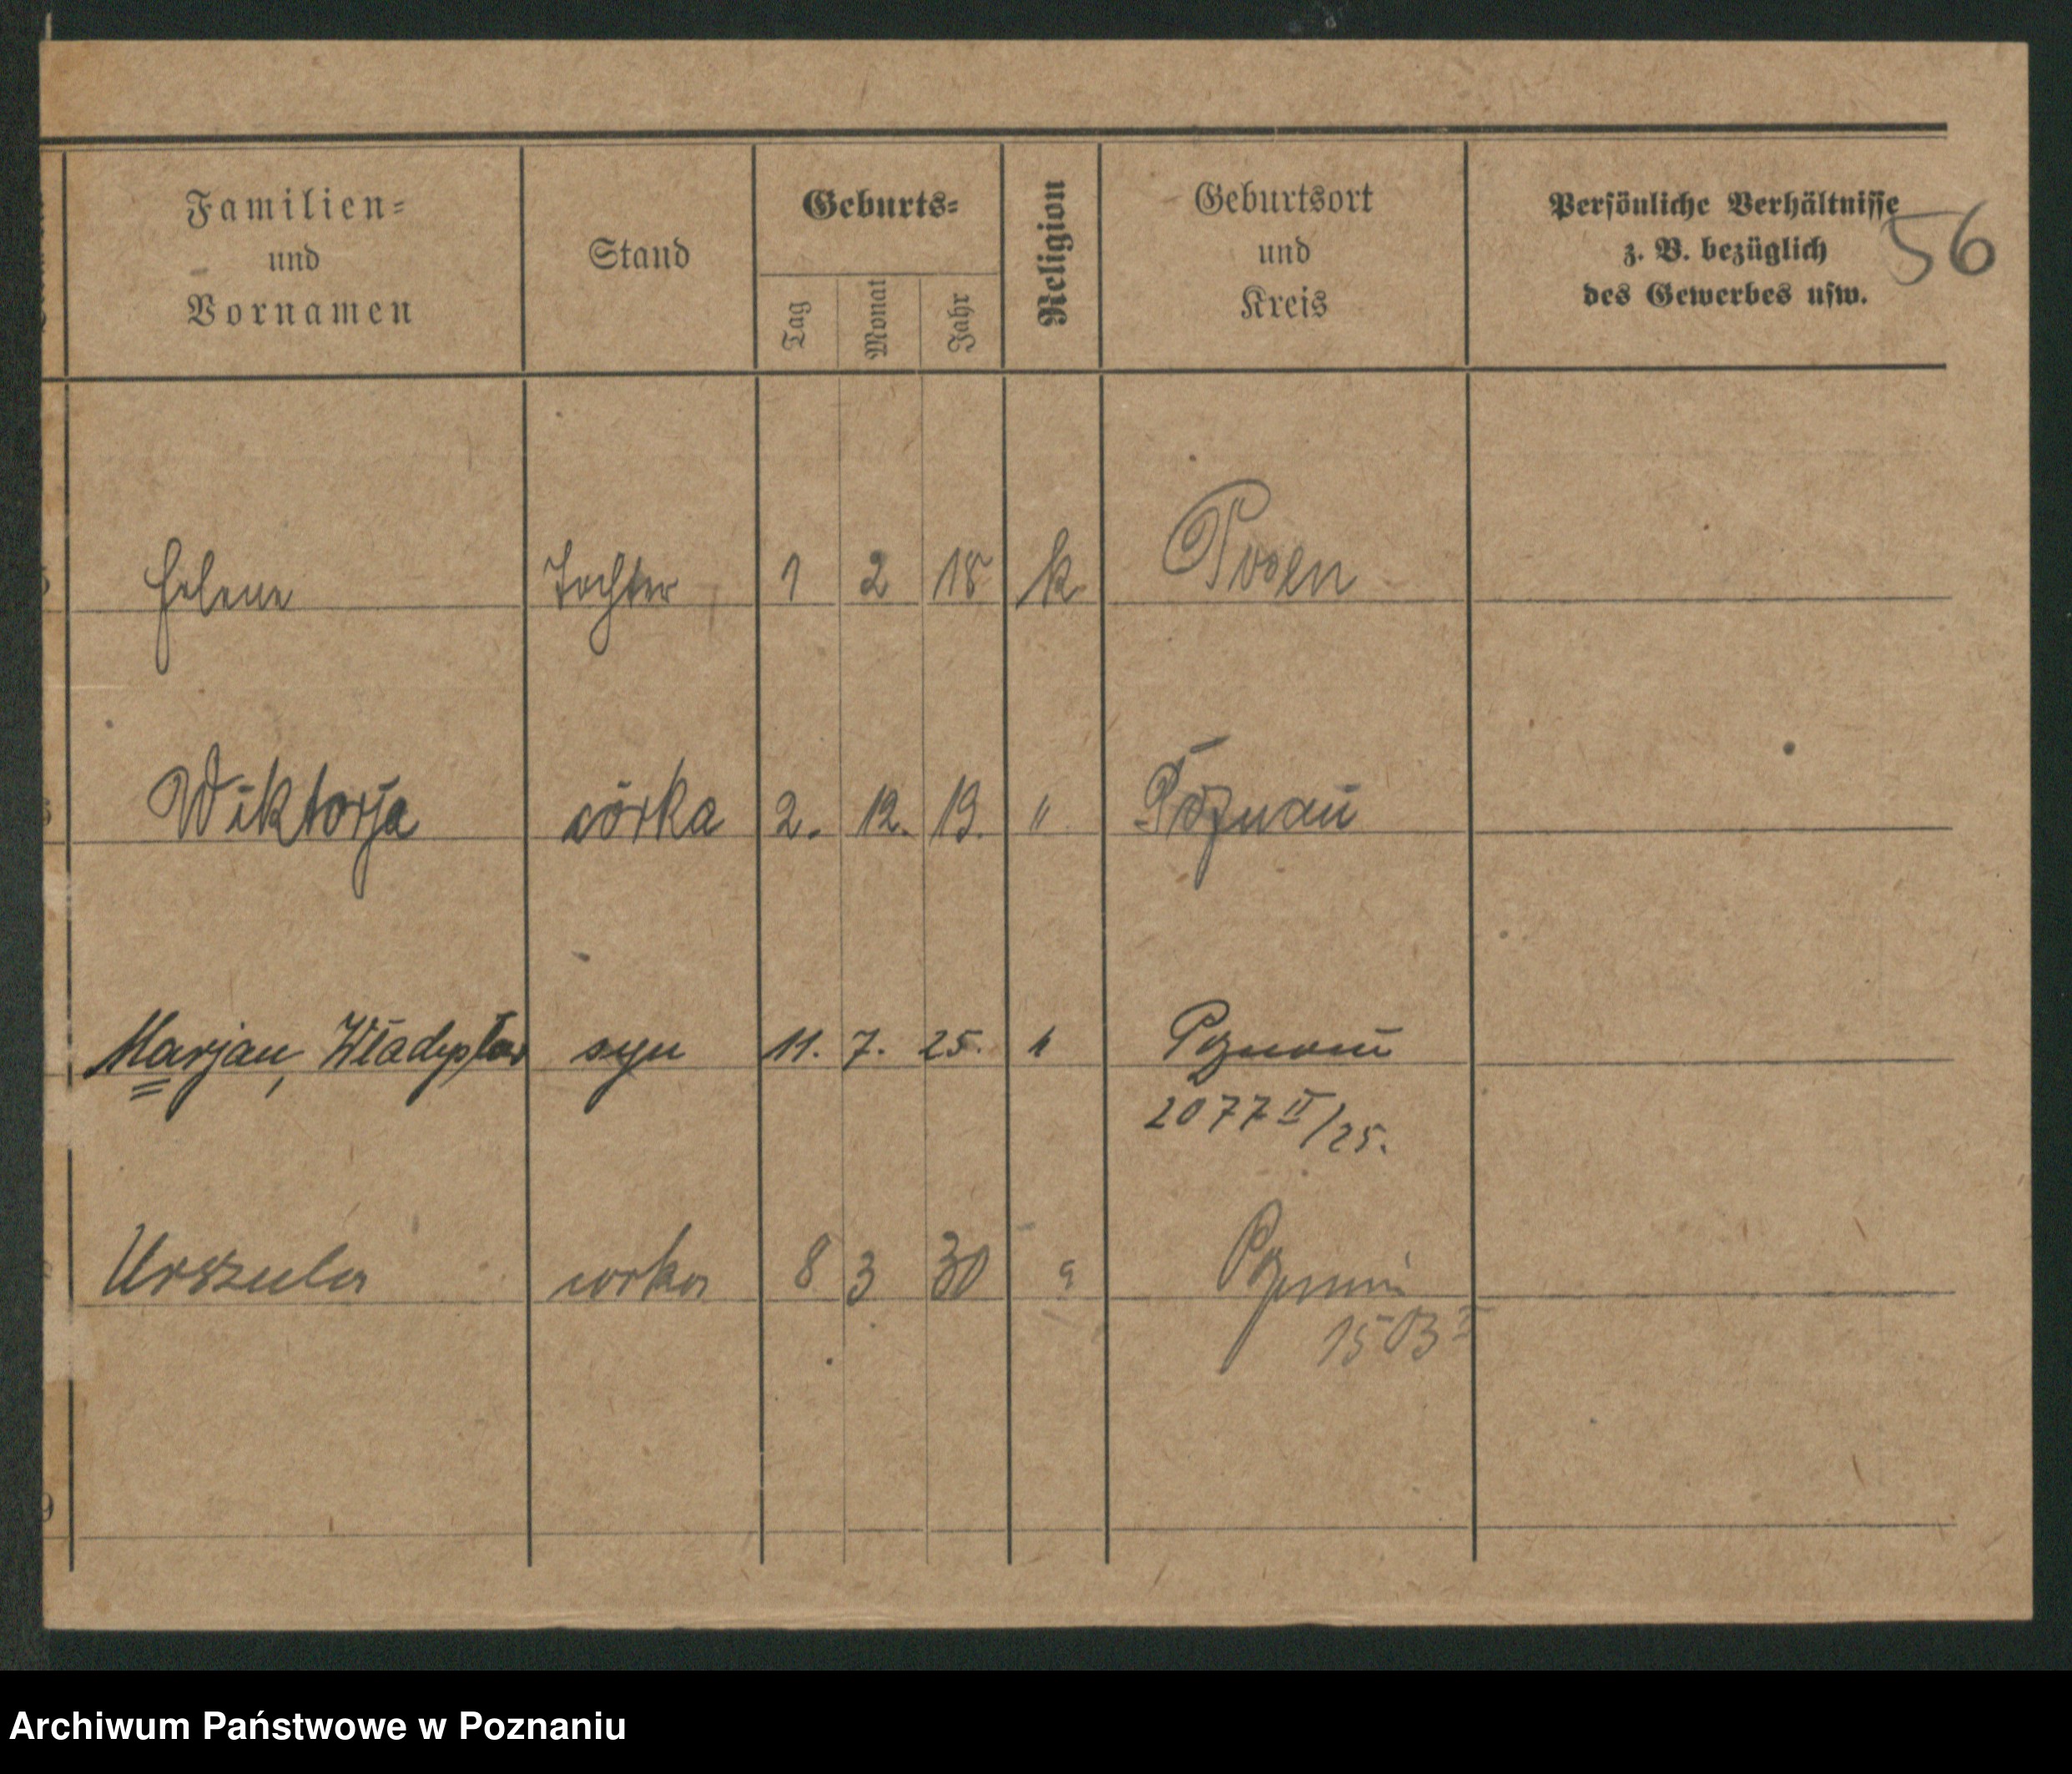 Familien=
und
Vornamen
Stand
Geburts=
Tag
Monat
Jahr
Religion
Geburtsort
und
Kreis
Persönliche Verhältnisse
z. B. bezüglich
des Gewerbes usw.
56
Helene Tochter 1 2 18 k. Posen
Wiktorja córka 2. 12. 19. " Poznań
Marjan, Władysław syn 11. 7. 25. " Poznań
2077 II/25.
Urszula corka 8 3 30 " Poznań
1503 I
9
Archiwum Państwowe w Poznaniu